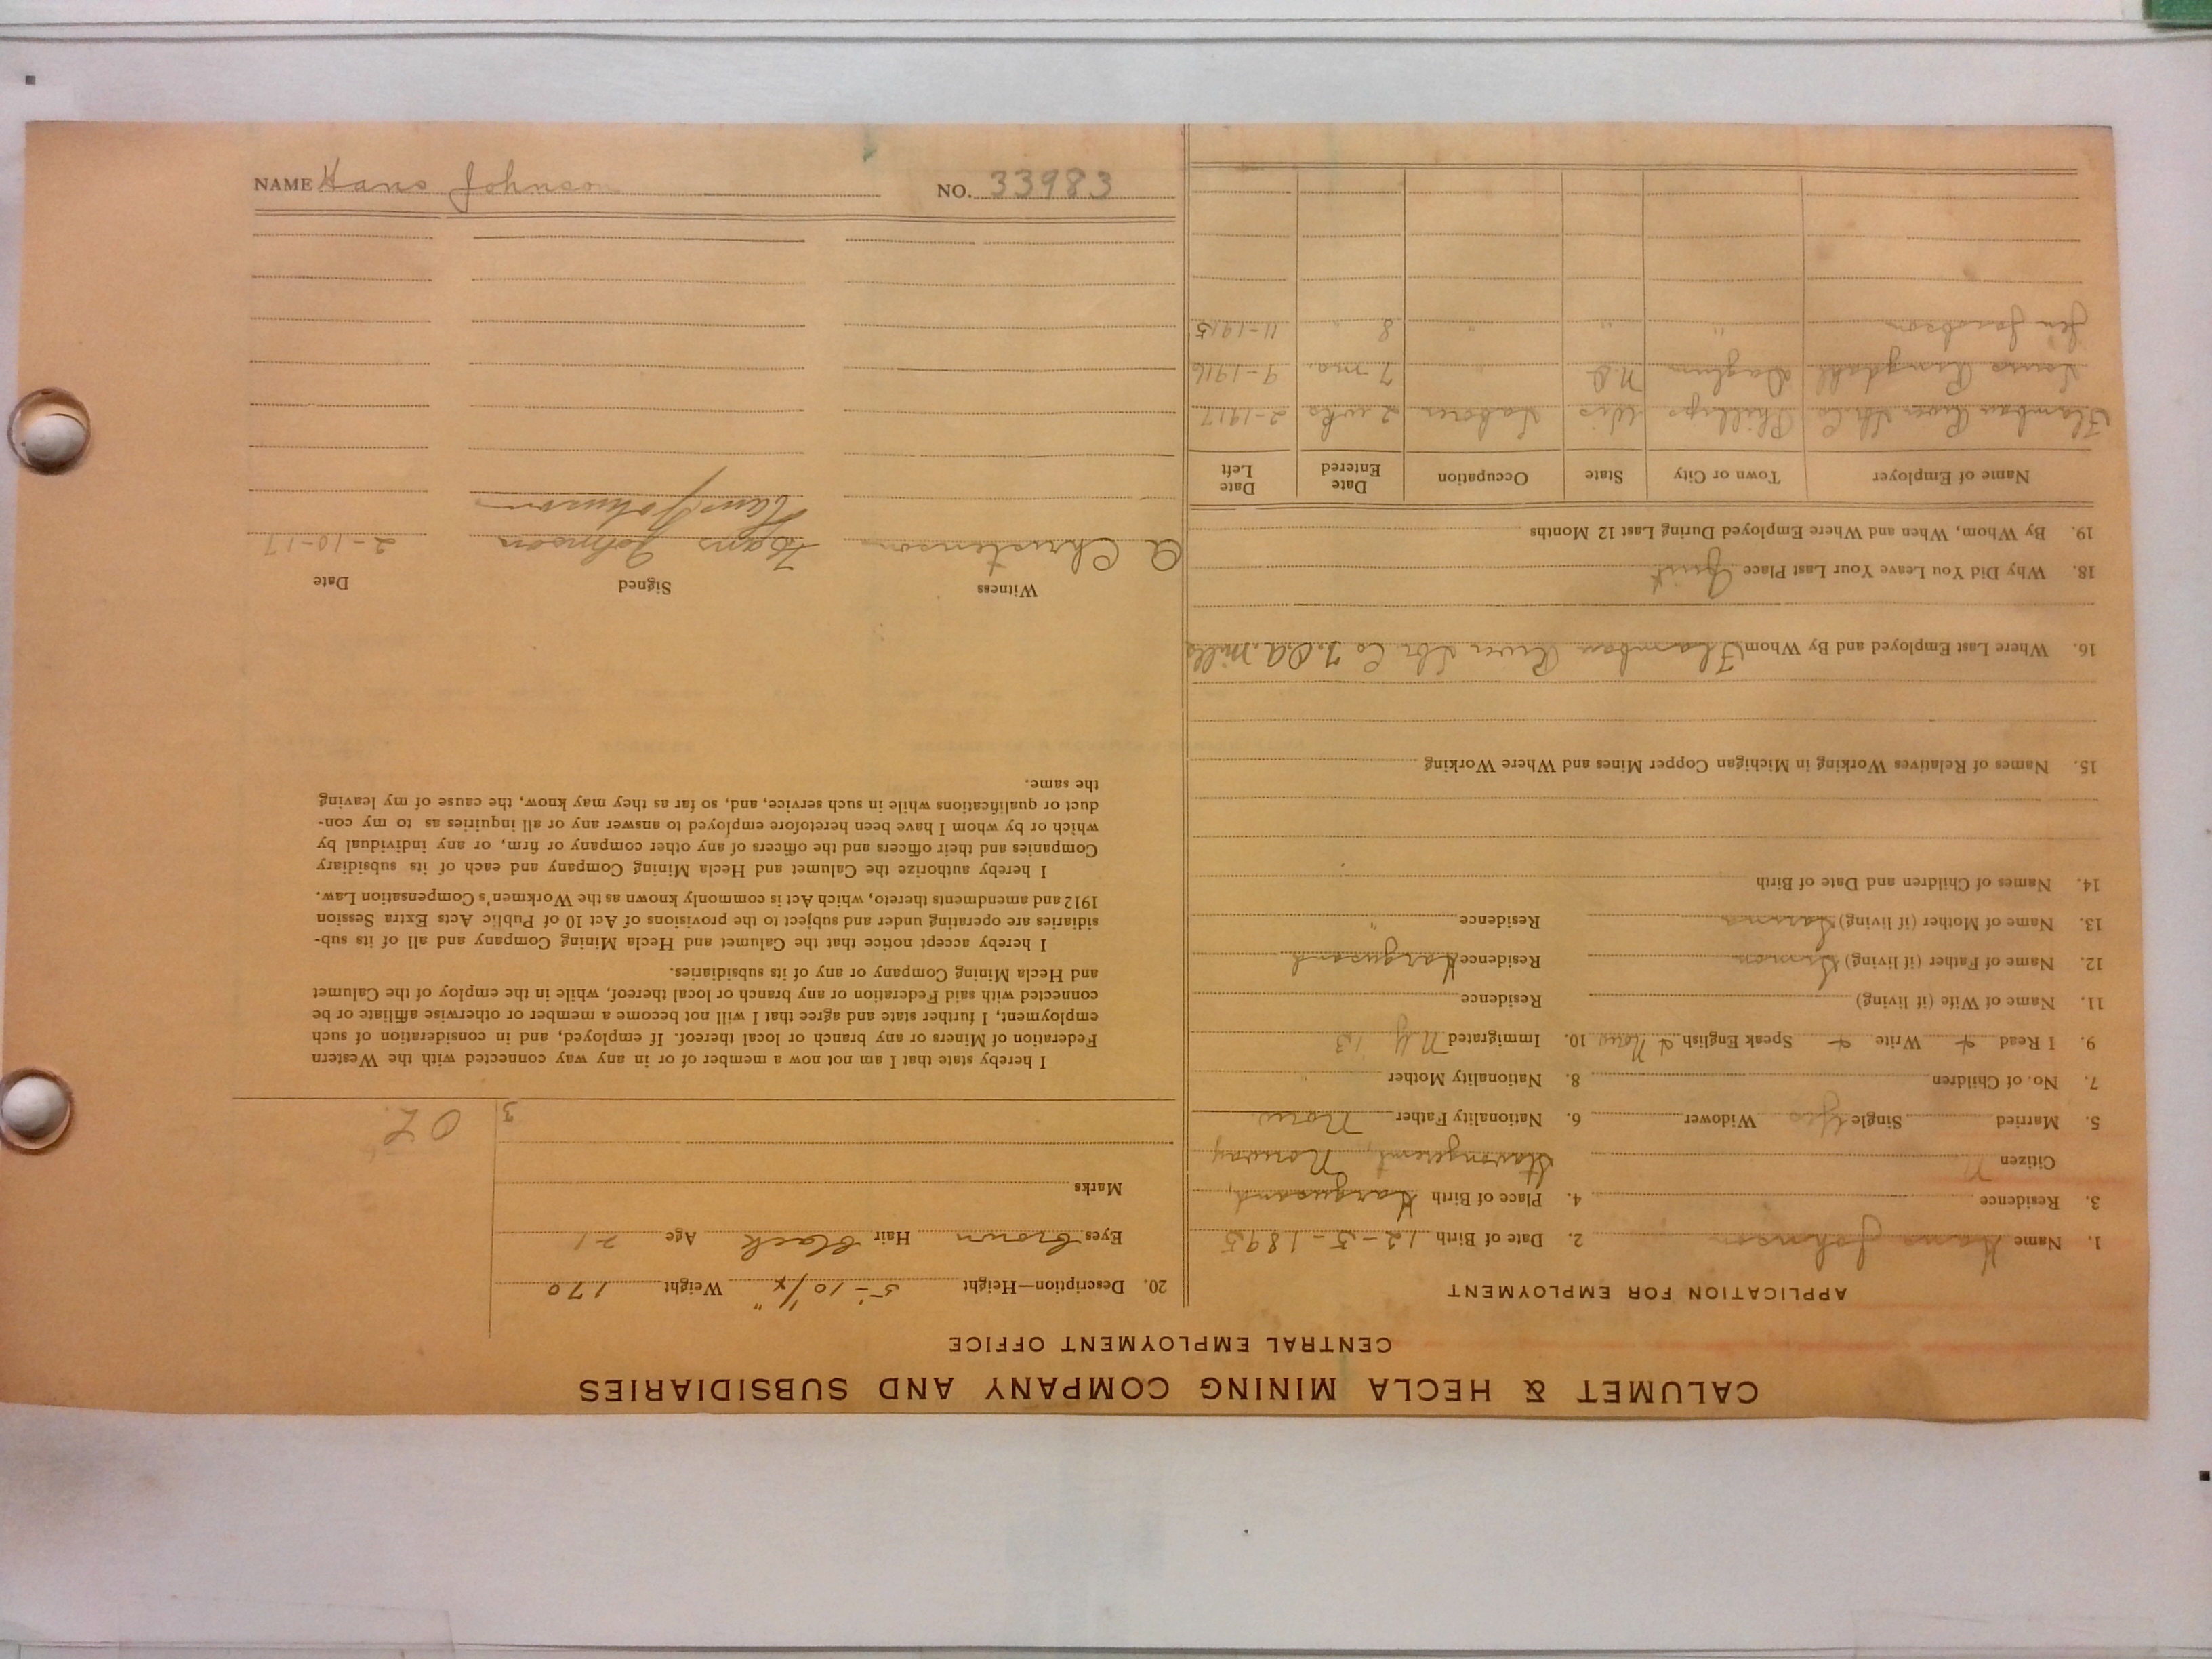 CALUMET & HECLA MINING COMPANY AND SUBSIDIARIES
CENTRAL EMPLOYMENT OFFICE
APPLICATION FOR EMPLOYMENT
1. Name Hans Johnson 2. Date of Birth 12-5-1895
3. Residence 4. Place of Birth
Citizen n Norway
5. Married Single yes Widower 6. Nationality Father Norw
7. No. of Children 8. Nationality Mother "
9. I Read + Write + Speak English + Norw 10. Immigrated N.Y 13
11. Name of Wife (if living) Residence
12. Name of Father (if living) Simon Residence
13. Name of Mother (if living) Residence "
14. Names of Children and Date of Birth
15. Names of Relatives Working in Michigan Copper Mines and Where Working
16. Where Last Employed and By Whom Flambau River Lbr. Co
18. Why Did You Leave Your Last Place Quit
19. By Whom, When and Where Employed During Last 12 Months
Name of Employer Town or City State Occupation Date Entered Date Left
Flambau River Lbr. Co Phillips Wis Laborer 2 wks 2-1917
Daglum N.D. " 7 mo. 9-1916
" " " 8 " 11-1915
20. Description—Height 5'-10 1/4" Weight 170
Eyes Brown Hair Black Age 21
Marks
3
I hereby state that I am not now a member of or in any way connected with the Western
Federation of Miners or any branch or local thereof. If employed, and in consideration of such
employment, I further state and agree that I will not become a member or otherwise affiliate or be
connected with said Federation or any branch or local thereof, while in the employ of the Calumet
and Hecla Mining Company or any of its subsidiaries.
I hereby accept notice that the Calumet and Hecla Mining Company and all of its sub-
sidiaries are operating under and subject to the provisions of Act 10 of Public Acts Extra Session
1912 and amendments thereto, which Act is commonly known as the Workmen's Compensation Law.
I hereby authorize the Calumet and Hecla Mining Company and each of its subsidiary
Companies and their officers and the officers of any other company or firm, or any individual by
which or by whom I have been heretofore employed to answer any or all inquiries as to my con-
duct or qualifications while in such service, and, so far as they may know, the cause of my leaving
the same.
Witness Signed Date
A Christenson Hans Johnson 2-10-17
Hans Johnson
NAME Hans Johnson NO. 33983